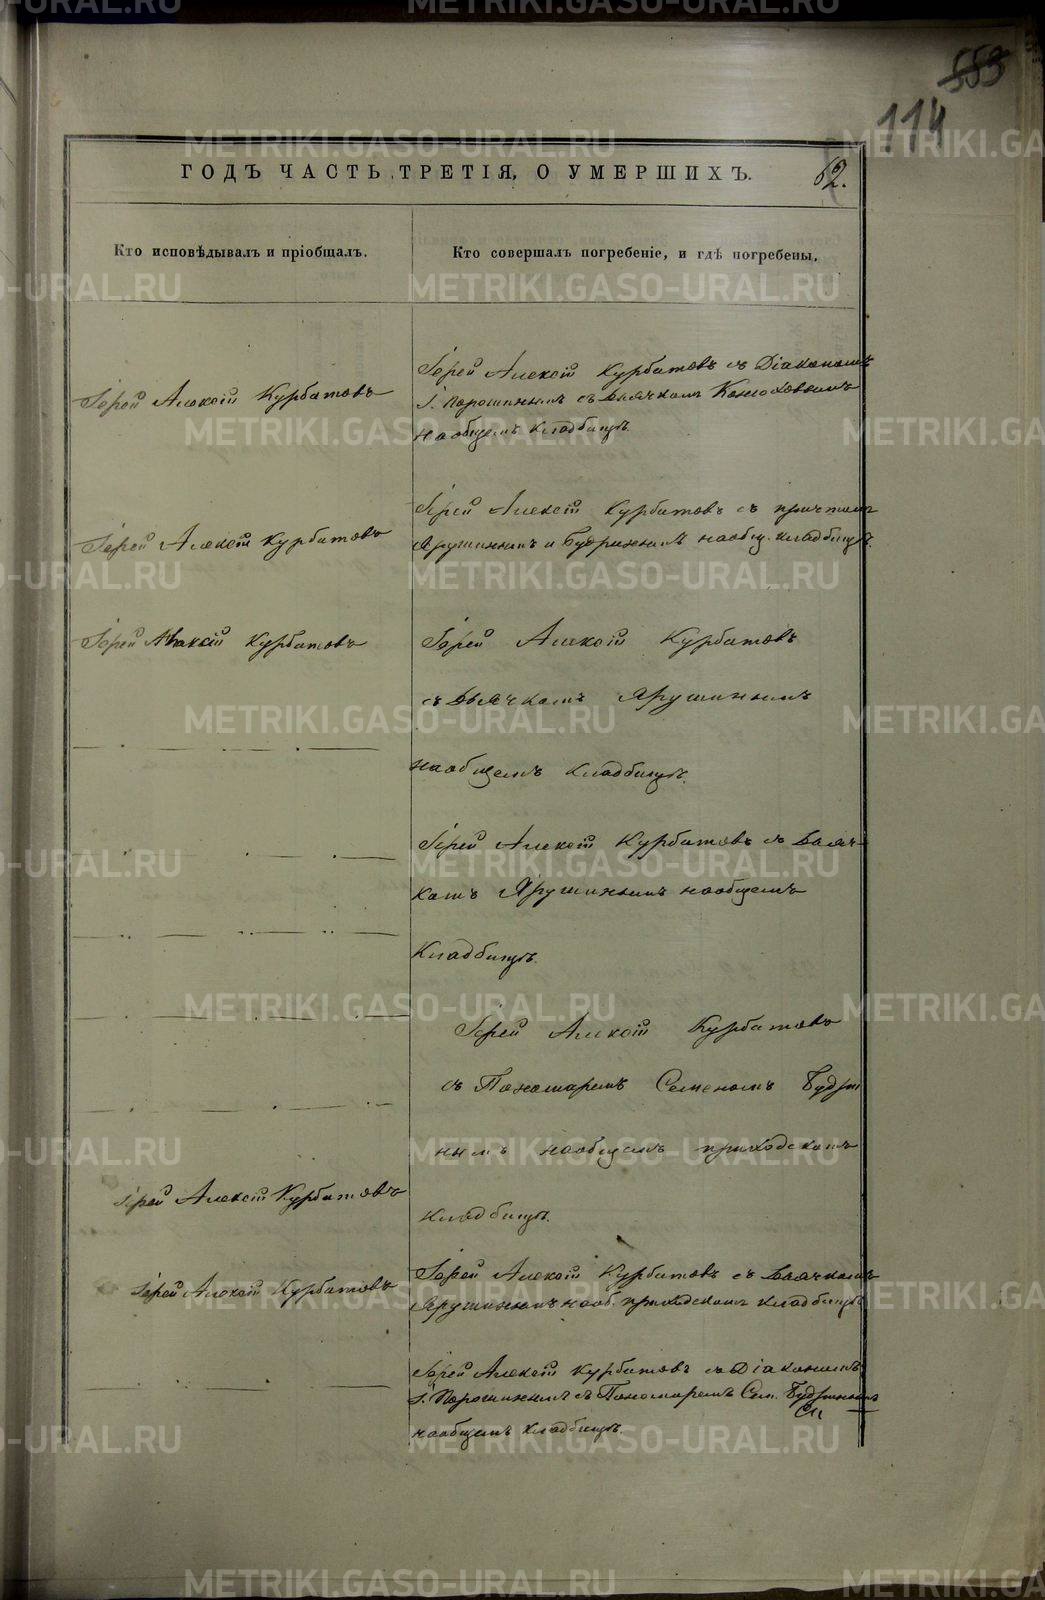 553
114
ГОДЪ ЧАСТЬ ТРЕТІЯ, О УМЕРШИХЪ.
62.
Кто исповѣдывалъ и пріобщалъ.
Кто совершалъ погребеніе, и гдѣ погребены.
Іерей Алексій Курбатовъ
Іерей Алексій Курбатовъ съ Діакономъ
І. Порошинымъ съ Дьячкомъ Конюховымъ
на общемъ кладбищѣ.
Іерей Алексій Курбатовъ
Іерей Алексій Курбатовъ съ причтомъ
Ярушинымъ и Будринымъ на общ. кладбищѣ.
Іерей Алексій Курбатовъ
Іерей Алексій Курбатовъ
съ Дьячкомъ Ярушинымъ
на общемъ кладбищѣ.
Іерей Алексій Курбатовъ съ Дьяч-
комъ Ярушинымъ на общемъ
Кладбищѣ.
Іерей Алексій Курбатовъ
съ Пономаремъ Семеномъ Будри
нымъ на общемъ приходскомъ
кладбищѣ.
Іерей Алексій Курбатовъ
Іерей Алексій Курбатовъ
Іерей Алексій Курбатовъ съ Дьячкомъ
Ярушинымъ на об. приходскомъ кладбищѣ
Іерей Алексій Курбатовъ съ Діакономъ
І. Порошинымъ съ Пономаремъ Сем. Будринымъ
на общемъ кладбищѣ.
METRIKI.GASO-URAL.RU